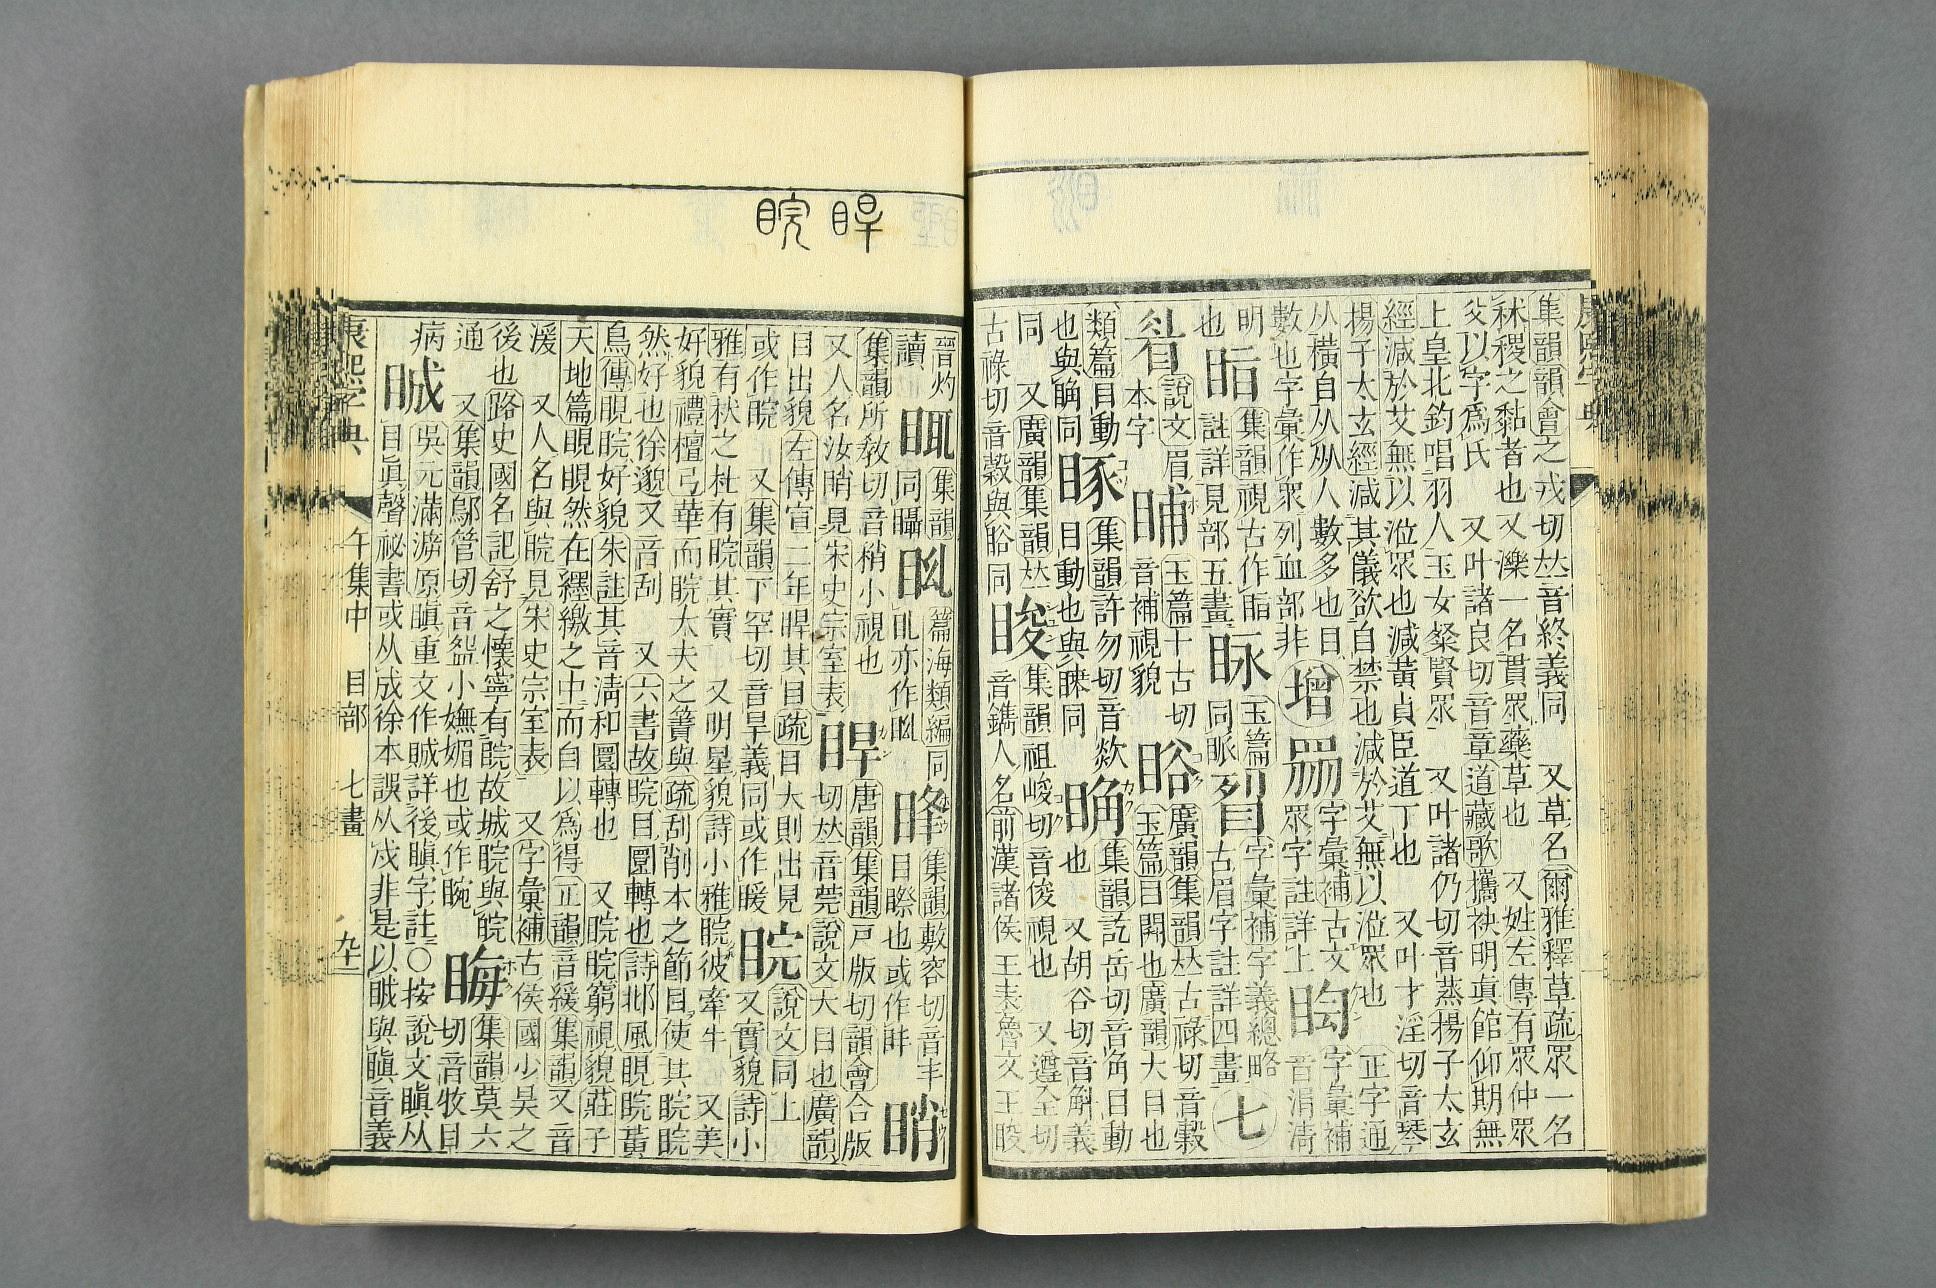 集韻韻會之戎切𠀤音終義同 又草名爾雅釋草疏眾一名
秫稷之黏者也又濼一名貫眾藥草也 又姓左傳有眾仲眾
父以字爲氏 又叶諸良切音章道藏歌攜袂明眞館仰期無
上皇北鈞唱羽人玉女粲賢眾 又叶諸仍切音蒸揚子太玄
經減於艾無以涖眾也減黃貞臣道丁也 又叶才淫切音琴
揚子太玄經減其儀欲自禁也減於艾無以涖眾也 正字通
从橫自从㐺人數多也目 增 字彙補古文 字彙補
數也字彙作眾列血部非 眾字註詳上 音涓淸
明 集韻視古作眂 玉篇 字彙補字義總略 七
也 註詳見部五畫 同眽 古眉字註詳四畫
說文眉 䀯 玉篇十古切 䜭 廣韻集韻𠀤古祿切音穀
本字 音補視貌 玉篇目開也廣韻大目也
類篇目動 集韻許勿切音欻 集韻訖岳切音角目動
也與同 目動也與同 也 又胡谷切音斛義
同 又廣韻集韻𠀤 睃 集韻祖峻切音俊視也 又遵全切
古祿切音穀與同 音鐫人名前漢諸侯王表魯文王睃
睅 睆
晉灼 集韻 篇海類編同 集韻敷容切音丰 睄
讀 同 亦作 目際也或作
集韻所敎切音稍小視也 睅 唐韻集韻戸版切韻會合版
又人名汝睄見宋史宗室表 切𠀤音莞說文大目也廣韻
目出貌左傳宣二年睅其目疏目大則出見
或作睆 又集韻下罕切音旱義同或作暖 睆 說文同上
雅有杕之杜有睆其實 又明星貌詩小雅睆彼牽牛 又美
又實貌詩小
好貌禮檀弓華而睆大夫之簀與疏刮削木之節目使其睆睆
然好也徐邈又音刮 又六書故睆目圜轉也詩邶風睍睆黃
鳥傳睍睆好貌朱註其音淸和圜轉也 又睆睆窮視貌莊子
天地篇睍睍然在纆繳之中而自以爲得正韻音緩集韻又音
湲 又人名與睆見宋史宗室表 又字彙補古侯國少昊之
後也路史國名記舒之懷寧有皖故城睆與皖
通 又集韻鄔管切音盌小嫵媚也或作睕 䀲 集韻莫六
切音牧目
病 䀕 吳元滿泝原瞋重文作䀕詳後瞋字註○按說文瞋从
目眞聲祕書或从戌徐本誤从戊非是以䀕與瞋音義
康熙字典 午集中 目部 七畫